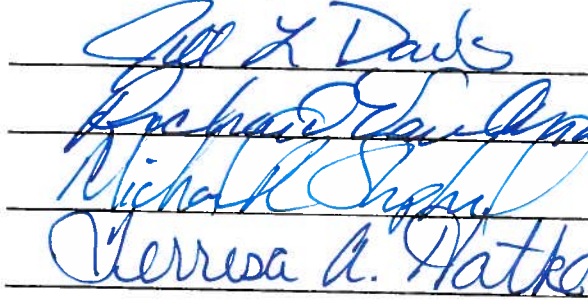 Jill L Davis
Richard
Michael
Terresa A. Hatke